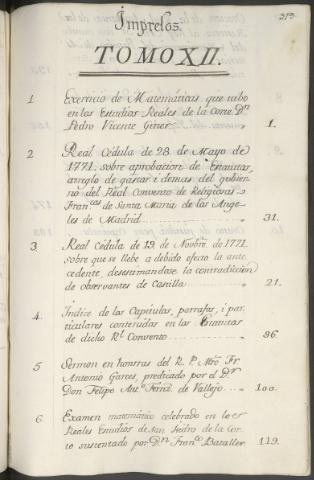 Impresos.
313.
TOMO XII.
1 Exercicio de Matemáticas que tubo
en los Estudios Reales de la Corte Dn.
Pedro Vicente Giner 1.
2 Real Cédula de 28 de Mayo de
1771. sobre aprobacion de Estatutos,
arreglo de gastos i demas del gobier
no del Real Convento de Religiosas
Francas de Santa Maria de los Ange-
les de Madrid 31.
3 Real Cédula de 19 de Novbre. de 1771.
sobre que se llebe a debido efecto la ante
cedente, desestimandose la contradiccion
de observantes de Castilla 21.
4. Indice de los Capitulos, parrafos, i par-
ticulares contenidos en los Estatutos
de dicho Rl. Convento 96
5 Sermon en honrras del R. P. Mro. Fr.
Antonio Garces, predicado por el Dr.
Don Felipe Anto. Fernd. de Vallejo 100.
6 Examen matemático celebrado en los
Reales Estudios de San Isidro de la Cor-
te sustentado por Dn. Franco. Bataller 119.